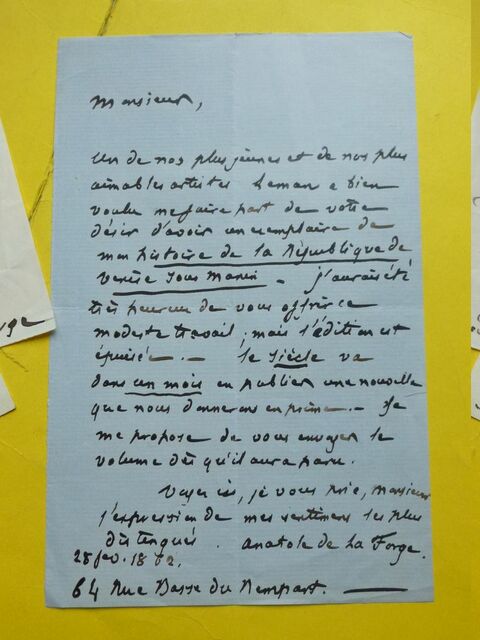 Monsieur,
Un de nos plus jeunes et de nos plus
aimables artistes Leman a bien
voulu me faire part de votre
désir d'avoir un exemplaire de
mon histoire de la République de
Venise sous Manin - j'aurais été
très heureux de vous offrir ce
modeste travail; mais l'édition est
épuisée. - Le Siècle va
dans un mois en publier une nouvelle
que nous donnerons en prime. - Je
me propose de vous envoyer le
volume dès qu'il aura paru.
Voyez ici, je vous prie, Monsieur
l'expression de mes sentimens les plus
distingués. Anatole de La Forge.
28 fev. 1862.
64 Rue Basse du Rempart.